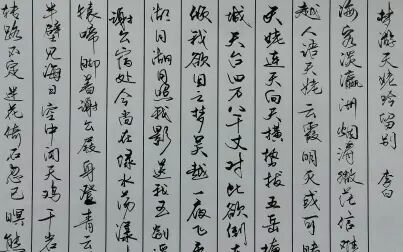 梦游天姥吟留别 李白
海客谈瀛洲烟涛微茫信难
越人语天姥云霞明灭或可睹
天姥连天向天横势拔五岳掩
城天台四万八千丈对此欲倒
倾我欲因之梦吴越一夜飞
湖月湖月照我影送我至剡
谢公宿处今尚在渌水荡漾
猿啼脚着谢公屐身登青云
半壁见海日空中闻天鸡千岩
转路不定迷花倚石忽已暝熊